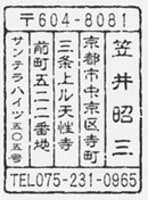 〒604-8081
笠井昭三
京都市中京区寺町
三条上ル天性寺
前町五二二番地
サンテラハイツ五〇五号
TEL075-231-0965